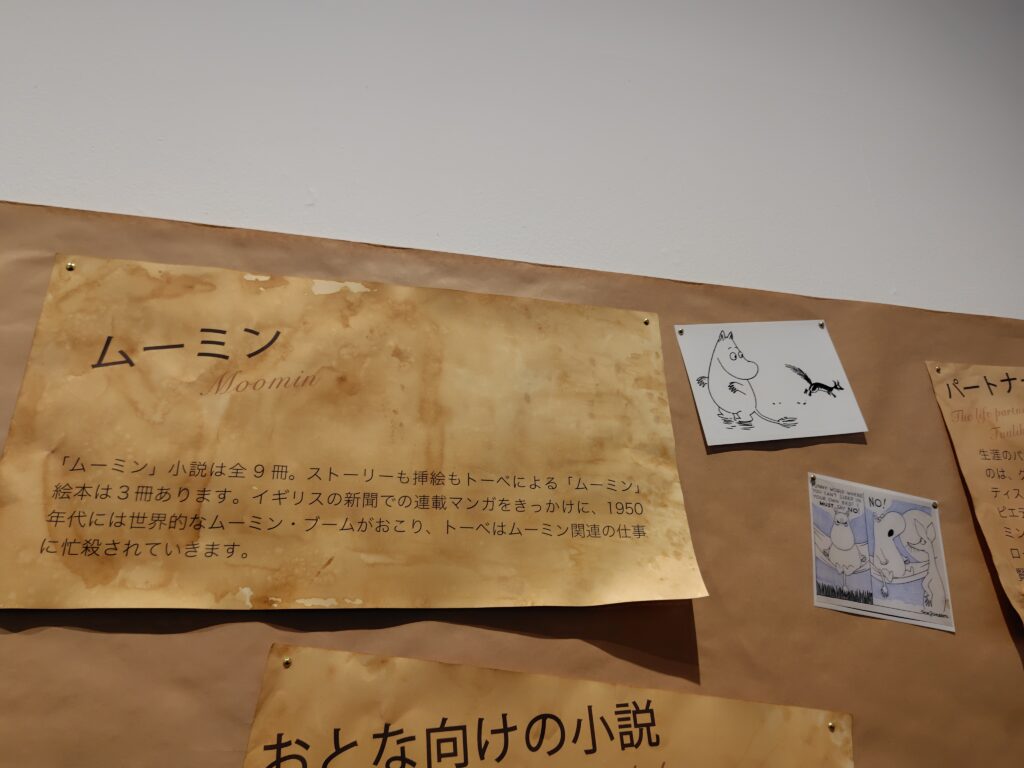 ムーミン
Moomin
「ムーミン」小説は全9冊。ストーリーも挿絵もトーベによる「ムーミン」
絵本は3冊あります。イギリスの新聞での連載マンガをきっかけに、1950
年代には世界的なムーミン・ブームがおこり、トーベはムーミン関連の仕事
に忙殺されていきます。
YOU CAN'T SLEEP IN
YOUR OWN BED! I
MUST SAY NO!
NO!
パートナー
The life partn
Tuulik
生涯のパ
のは、グ
ティス
ピエテ
ミン
ロ
賢
おとな向けの小説